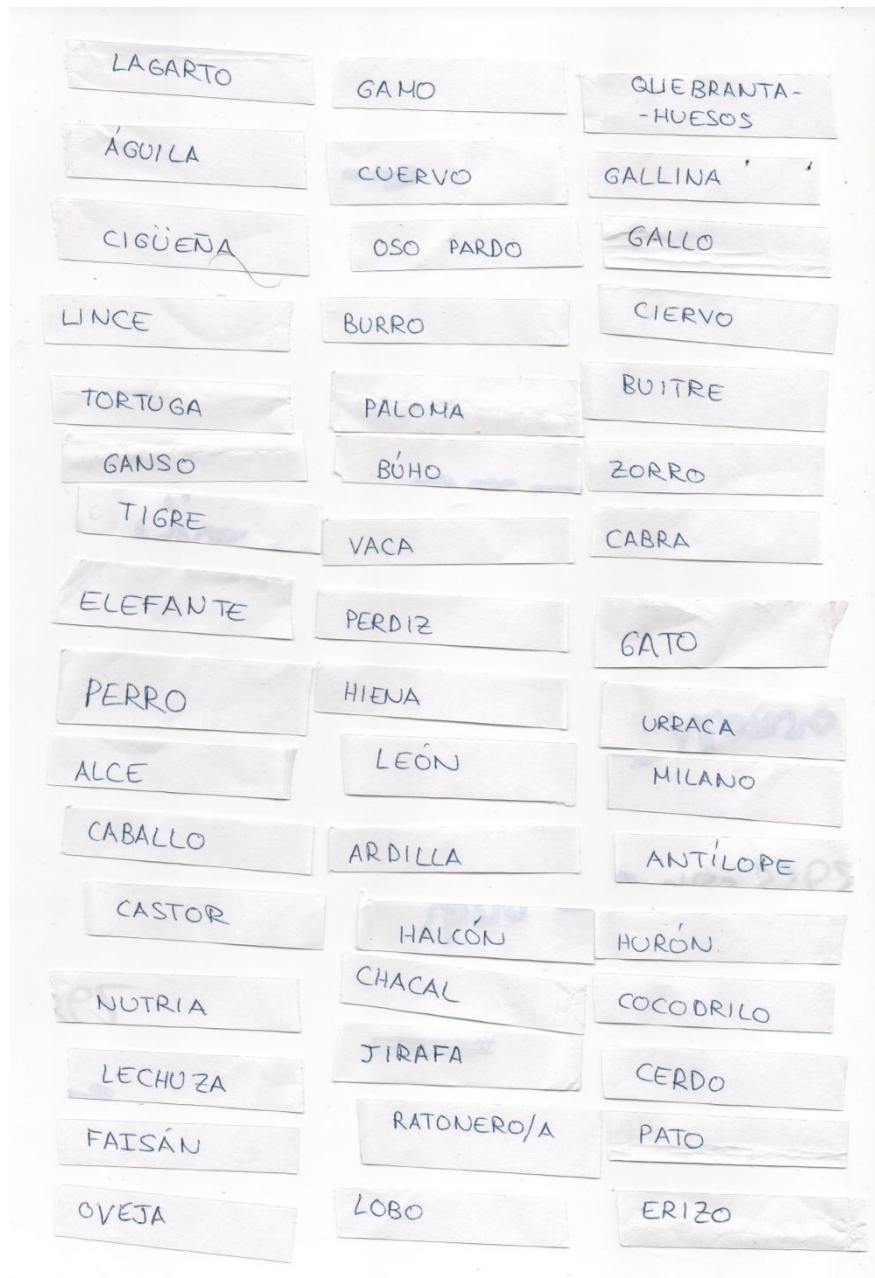 LAGARTO
ÁGUILA
CIGÜEÑA
LINCE
TORTUGA
GANSO
TIGRE
ELEFANTE
PERRO
ALCE
CABALLO
CASTOR
NUTRIA
LECHUZA
FAISÁN
OVEJA
GAMO
CUERVO
OSO PARDO
BURRO
PALOMA
BÚHO
VACA
PERDIZ
HIENA
LEÓN
ARDILLA
HALCÓN
CHACAL
JIRAFA
RATONERO/A
LOBO
QUEBRANTA-
-HUESOS
GALLINA
GALLO
CIERVO
BUITRE
ZORRO
CABRA
GATO
URRACA
MILANO
ANTÍLOPE
HURÓN
COCODRILO
CERDO
PATO
ERIZO